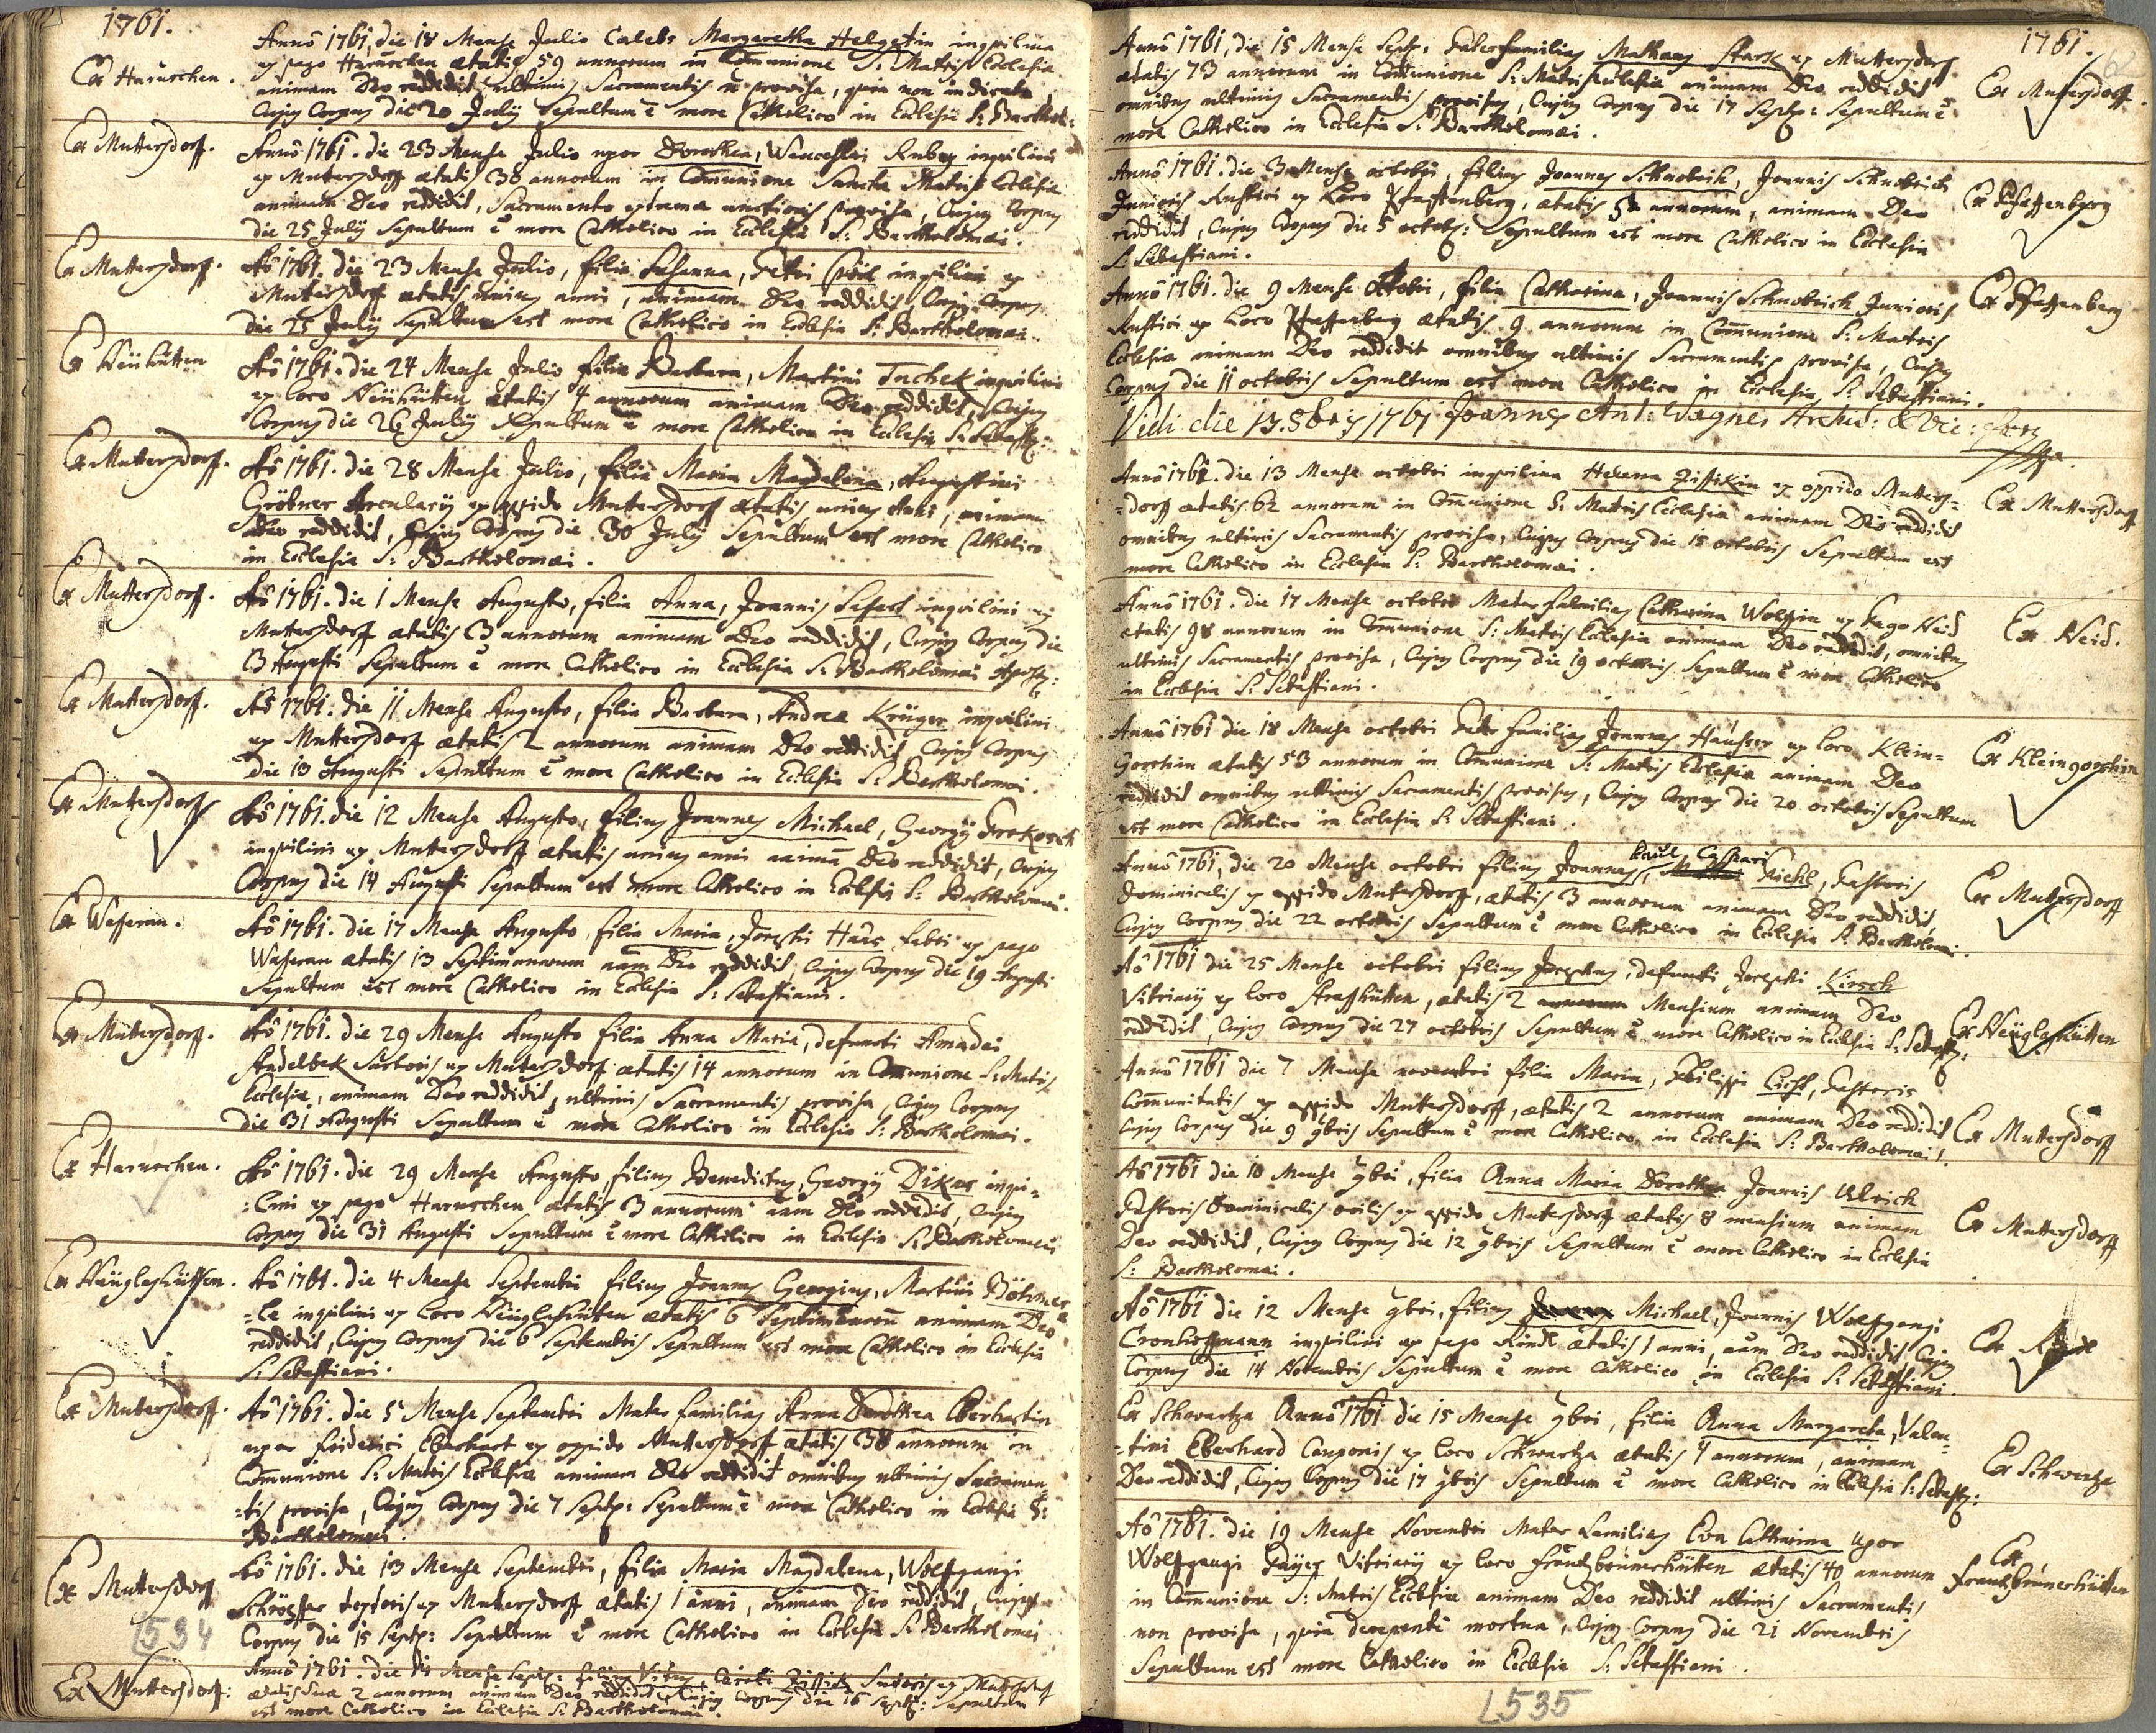 1761.
Ex Haruschen.
Anno 1761, die 18 Mense Julio Caelebs Margaretha Helgetin inqvilina
ex pago Haruschen aetatis 59 annorum in Communione S: Matris Ecclesiae
animam Deo reddidit, ultimis Sacramentis provisa, quia non indicata
Cujus Corpus die 20 July Sepultum ē more Catholico in Ecclesia S: Barthol:
Ex Muttersdorff.
Anno 1761. die 23 Mense Julio uxor Dorothea, Wenceslai Rubeꝫ inqvilini
ex Muttersdorff aetatis 38 annorum in Communione Sanctae Matris Ecclesiae
animam Deo reddidit, Sacramento extremae unctionis provisa, Cujus Corpus
die 25 July Sepultum ē more Catholico in Ecclesia S: Bartholomaei.
Ex Muttersdorff.
Aō 1761. die 23 Mense Julio, filia Susanna, Petri inqvilini ex
Muttersdorff aetatis unius anni, animam Deo reddidit, Cujus Corpus
die 25 July Sepultum est more Catholico in Ecclesia S: Bartholomaei.
Ex Neühütten
Aō 1761. die 24 Mense Julio filia Barbara, Martini Tuchek inqvilini
ex loco Neühütten aetatis 4 annorum animam Deo reddidit, Cujus
Corpus die 26 July Sepultum ē more Catholico in Ecclesia S: Sebast:
Ex Muttersdorff.
Aō 1761. die 28 Mense Julio, filia Maria Magdalena, Augustini
Gröbner Arculary ex oppido Muttersdorff aetatis unius Anni, animam
Deo reddidit, Cujus Corpus die 30 July Sepultum est more Catholico
in Ecclesia S: Bartholomaei.
Ex Muttersdorff.
Aō 1761. die 1 Mense Augusto, filia Anna, Joannis inqvilini ex
Muttersdorff aetatis 3 annorum animam Deo reddidit, Cujus Corpus die
3 Augusti Sepultum ē more Catholico in Ecclesia S: Bartholomaei Apost:
Ex Muttersdorff.
Aō 1761. die 11 Mense Augusto, filia Barbara, Andreae Krüger inqvilini
ex Muttersdorff aetatis 2 annorum animam Deo reddidit, Cujus Corpus
die 13 Augusti Sepultum ē more Catholico in Ecclesia S: Bartholomaei.
Ex Muttersdorff
Aō 1761. die 12 Mense Augusto, filius Joannes Michael, Georgy Prokosch
inqvilini ex Muttersdorff aetatis unius anni animā Deo reddidit, Cujus
Corpus die 14 Augusti Sepultum est more Catholico in Ecclesia S: Bartholomaei.
Ex Wasserau.
Aō 1761. die 17 Mense Augusto filia Maria, Josephi Haas fabri ex pago
Wasserau aetatis 13 Septimanarum aām Deo reddidit, Cujus Corpus die 19 Augusti
Sepultum est more Catholico in Ecclesia S: Sebastiani.
Ex Muttersdorff.
Aō 1761. die 29 Mense Augusto filia Anna Maria, defuncti Amadei
Andelbek Sartoris ex Muttersdorff aetatis 14 annorum in Communione S: Matris
Ecclesiae, animam Deo reddidit, ultimis Sacramentis provisa, Cujus Corpus
die 31 Augusti Sepultum ē more Catholico in Ecclesia S: Bartholomaei.
Ex Haruschen.
Aō 1761. die 29 Mense Augusto, filius Benedictus, Georgy Dikas inqvi=
:lini ex pago Haruschen aetatis 3 annorum aām Deo reddidit, Cujus
Corpus die 31 Augusti Sepultum ē more Catholico in Ecclesia S: Bartholomaei
Ex Neüglashütten.
Aō 1761. die 4 Mense Septembri filius Joannes Georgius, Martini Böhmer
=le inqvilini ex loco Neüglashütten aetatis 6 Septimanarum animam Deo
reddidit, Cujus Corpus die 6 Septembris Sepultum est more Catholico in Ecclesia
S: Sebastiani.
Ex Muttersdorff.
Aō 1761. die 5 Mense Septembri Mater familias Anna Dorothea Eberhartin
uxor friderici Eberhart ex oppido Muttersdorff aetatis 38 annorum in
Communione S: Matris Ecclesiae animam Deo reddidit omnibus ultimis Sacramen
=tis provisa, Cujus Corpus die 7 Septb: Sepultum ē more Catholico in Ecclesia S:
Bartholomaei.
Ex Muttersdorff
Aō 1761. die 13 Mense Septembri, filia Maria Magdalena, Wolffgangi
Schröpfer textoris ex Muttersdorff aetatis 1 anni, animam Deo reddidit, Cujus
Corpus die 15 Septb: Sepultum ē more Catholico in Ecclesia S: Bartholomaei
534
Ex Muttersdorff:
Anno 1761. die 14 Mense Septb: filius Vitus, Caroli Zissik Sutoris ex Muttersdorff
aetatis suae 2 annorum animam Deo reddidit, Cujus Corpus die 16 Septb: Sepultum
est more Catholico in Ecclesia S: Bartholomaei.
1761.
62
Anno 1761, die 15 Mense Septb: Pater familias Mathaeus Stark ex Muttersdorff
aetatis 73 annorum in Communione S: Matris Ecclesiae animam Deo reddidit
omnibus ultimis Sacramentis provisus, Cujus Corpus die 17 Septb: Sepultum ē
more Catholico in Ecclesia S: Bartholomaei.
Ex Muttersdorff.
Anno 1761. die 3 Mense octobri, filius Joannes Schnobrich, Joannis Schnobrich
Junioris Rustici ex Loco Pfaffenberg, aetatis 5 annorum, animam Deo
reddidit, Cujus Corpus die 5 octob: Sepultum est more Catholico in Ecclesia
S: Sebastiani.
Ex Pfaffenberg
Anno 1761. die 9 Mense Octobri, filia Catharina, Joannis Schnobrich Junioris
Rustici ex Loco Pfaffenberg aetatis 9 annorum in Communione S: Matris
Ecclesiae animam Deo reddidit omnibus ultimis Sacramentis provisa, Cujus
Corpus die 11 octobris Sepultum est more Catholico in Ecclesia S: Sebastiani.
Ex Pfaffenberg
Vidi die 13. 8bris 1761 Joannes Ant: Wagner Archid: & Vic:
Anno 1761. die 13 Mense octobri inqvilina Helena Zissikin ex oppido Mutters=
=dorff aetatis 62 annorum in Communione S: Matris Ecclesiae animam Deo reddidit
omnibus ultimis Sacramentis provisa, Cujus Corpus die 15 octobris Sepultum est
more Catholico in Ecclesia S: Bartholomaei.
Ex Muttersdorff
Anno 1761. die 17 Mense octobri Mater familias Catharina Wolffin ex Pago Neid
aetatis 98 annorum in Communione S: Matris Ecclesiae animam Deo reddidit, omnibus
ultimis Sacramentis provisa, Cujus Corpus die 19 octobris Sepultum ē more Catholico
in Ecclesia S: Sebastiani.
Ex Neid.
Anno 1761 die 18 Mense octobri Pater familias Joannes Hausser ex loco Klein=
Gorschin aetatis 53 annorum in Communione S: Matris Ecclesiae animam Deo
reddidit omnibus ultimis Sacramentis provisus, Cujus Corpus die 20 octobris Sepultum
est more Catholico in Ecclesia S: Sebastiani.
Ex Kleingorschin
Paul Caspari
Anno 1761, die 20 Mense octobri filius Joannes, Kiehl, Pastoris
Dominicalis ex oppido Muttersdorff, aetatis 3 annorum animam Deo reddidit,
Cujus Corpus die 22 octobris Sepultum ē more Catholico in Ecclesia S: Bartholom:
Ex Muttersdorff
Aō 1761 die 25 Mense octobri filius Josephus, defuncti Josephi Kirsch
Vitriary ex loco Strasshütten, aetatis 2 annorum Mensium animam Deo
reddidit, Cujus Corpus die 27 octobris Sepultum ē more Catholico in Ecclesia S: Sebast:
Ex Neüglashütten
Anno 1761 die 7 Mense novembri filia Maria, Philippi Licht, Pastoris
Communitatis ex oppido Muttersdorff, aetatis 2 annorum animam Deo reddidit
Cujus Corpus die 9 9bris Sepultum ē more Catholico in Ecclesia S: Bartholomaei.
Ex Muttersdorff
Aō 1761 die 10 Mense 9bri, filia Anna Maria Dorothea Joannis Ulrich
Pastoris Dominicalis ovilis ex oppido Muttersdorff aetatis 8 mensium animam
Deo reddidit, Cujus Corpus die 12 9bris Sepultum ē more Catholico in Ecclesia
S: Bartholomaei.
Ex Muttersdorff
Aō 1761 die 12 Mense 9bri, filius Michael, Joannis Wolffgangi
Cronhoffmann inqvilini ex pago Rindl aetatis 1 anni, aām Deo reddidit, Cujus
Corpus die 14 Novembris Sepultum ē more Catholico in Ecclesia S: Sebastiani.
Ex Rindl
Ex Schwartza Anno 1761 die 15 Mense 9bri, filia Anna Margareta, Valen=
=tini Eberhard Cauponis ex loco Schwartza aetatis 4 annorum, animam
Deo reddidit, Cujus Corpus die 17 9bris Sepultum ē more Catholico in Ecclesia S: Sebast:
Ex Schwartza
Aō 1761. die 19 Mense Novembri Mater familias Eva Catharina uxor
Wolffgangi Payer Vitriary ex loco Frantzbrunerhütten aetatis 40 annorum
in Communione S: Matris Ecclesiae animam Deo reddidit ultimis Sacramentis
non provisa, quia derepentè mortua, Cujus Corpus die 21 Novembris
Sepultum est more Catholico in Ecclesia S: Sebastiani.
Ex
Frantzbrunerhütten
535